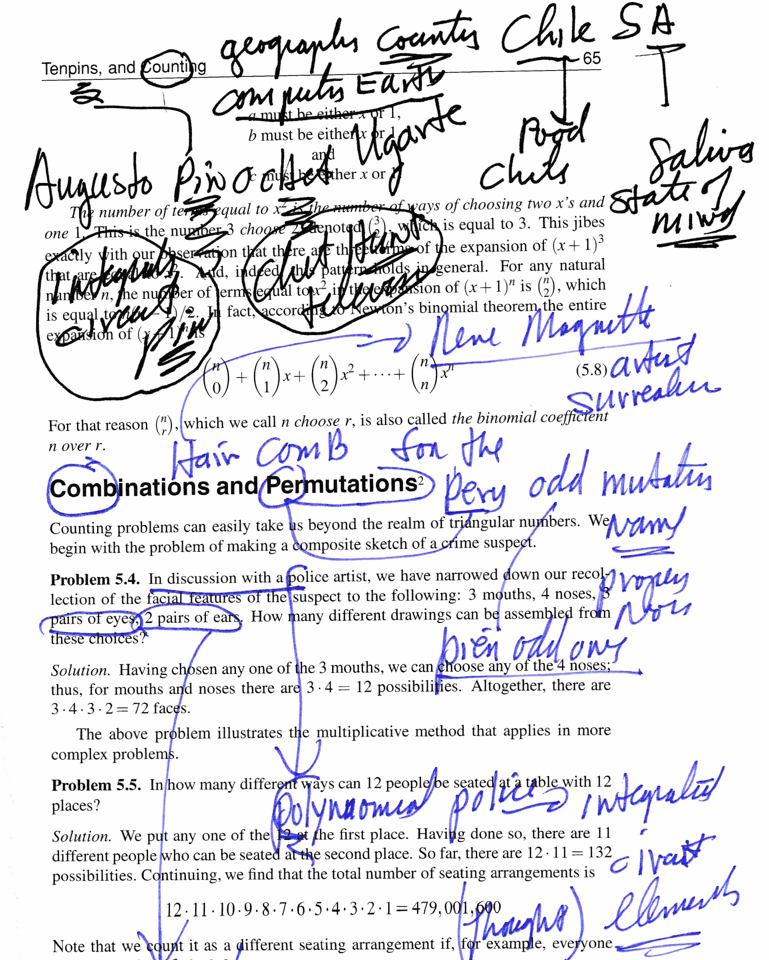 geography Counter Chile SA
Tenpins, and Counting 65
computer Earth
a must be either x or 1,
b must be either x or 1
and
Ugarte
Food
Chile
c must be either x or
Augusto Pinochet
Saliva
state of
mind
The number of terms equal to x² is the number of ways of choosing two x's and
one 1. This is the number 3 choose 2, denoted (3 2), which is equal to 3. This jibes
exactly with our observation that there are three terms of the expansion of (x+1)³
that are equal to x². And, indeed, this pattern holds in general. For any natural
number n, the number of terms equal to x² in the expansion of (x+1)ⁿ is (n 2), which
is equal to n(n−1)/2. In fact, according to Newton's binomial theorem, the entire
expansion of (x+1)ⁿ is
integral
circuit
pin
Chet Hunt
Rene Magritte
(n 0) + (n 1) x + (n 2) x² + ··· + (n n) xⁿ (5.8)
artist
surrealism
For that reason (n r), which we call n choose r, is also called the binomial coefficient
n over r.
Hair Comb for the
Combinations and Permutations²
Pery odd mutates
Counting problems can easily take us beyond the realm of triangular numbers. We
begin with the problem of making a composite sketch of a crime suspect.
Name
Problem 5.4. In discussion with a police artist, we have narrowed down our recol-
lection of the facial features of the suspect to the following: 3 mouths, 4 noses, 3
pairs of eyes, 2 pairs of ears. How many different drawings can be assembled from
these choices?
odd ones
Solution. Having chosen any one of the 3 mouths, we can choose any of the 4 noses;
thus, for mouths and noses there are 3·4 = 12 possibilities. Altogether, there are
3·4·3·2 = 72 faces.
The above problem illustrates the multiplicative method that applies in more
complex problems.
Problem 5.5. In how many different ways can 12 people be seated at a table with 12
places?
Polynomial police integrated
Solution. We put any one of the 12 at the first place. Having done so, there are 11
different people who can be seated at the second place. So far, there are 12·11 = 132
possibilities. Continuing, we find that the total number of seating arrangements is
elements
12·11·10·9·8·7·6·5·4·3·2·1 = 479,001,600
(thoughts)
Note that we count it as a different seating arrangement if, for example, everyone